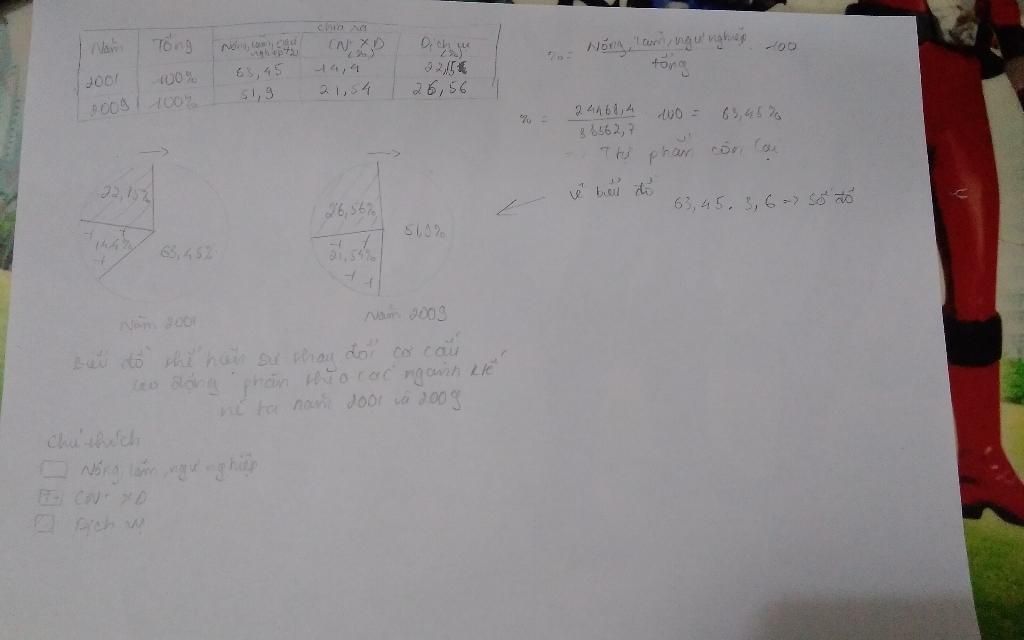 chia ra
Năm Tổng Nông, lâm, ngư nghiệp (%) CN-XD (%) Dịch vụ (%)
2001 100% 63,45 14,4 22,15
2009 100% 51,9 21,54 26,56
%= Nông, lâm, ngư nghiệp . 100
tổng
% = 24468,4 . 100 = 63,45%
38562,7
=> Thị phần còn lại
vẽ biểu đồ 63,45 . 3,6 => số đồ
22,15%
14,4%
63,45%
Năm 2001
26,56%
51,9%
21,54%
Năm 2009
Biểu đồ thể hiện sự thay đổi cơ cấu
lao động phân theo các ngành ktế
nc ta năm 2001 và 2009
Chú thích
Nông, lâm, ngư nghiệp
CN-XD
Dịch vụ